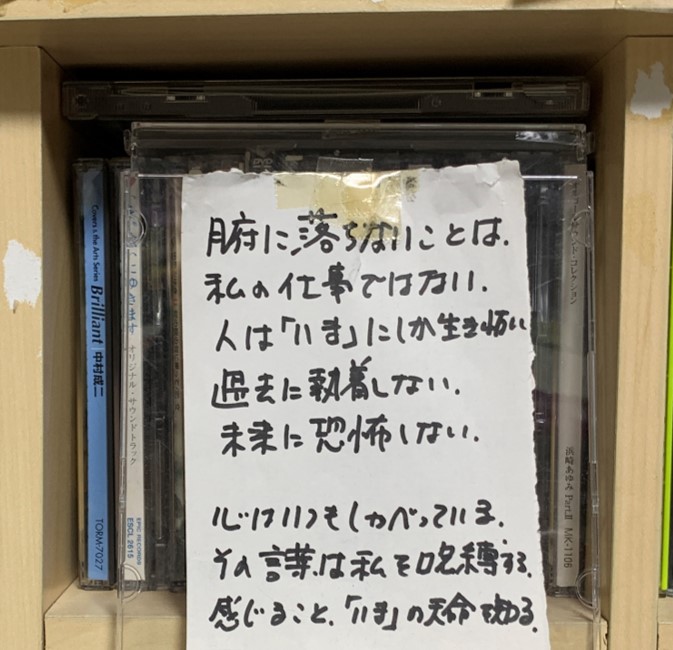 腑に落ちないことは、
私の仕事ではない。
人は「いま」にしか生き
過去に執着しない。
未来に恐怖しない。
心はいつもしゃべっている。
その言葉は私を呪縛する。
感じること、「いま」の天命
Covers the Arts Series Brilliant 中村成二
TORM-7027
オリジナル・サウンドトラック
EPIC RECORDS
ESCL 2615
サウンド・コレクション
浜崎あゆみ Part.II MK-1106